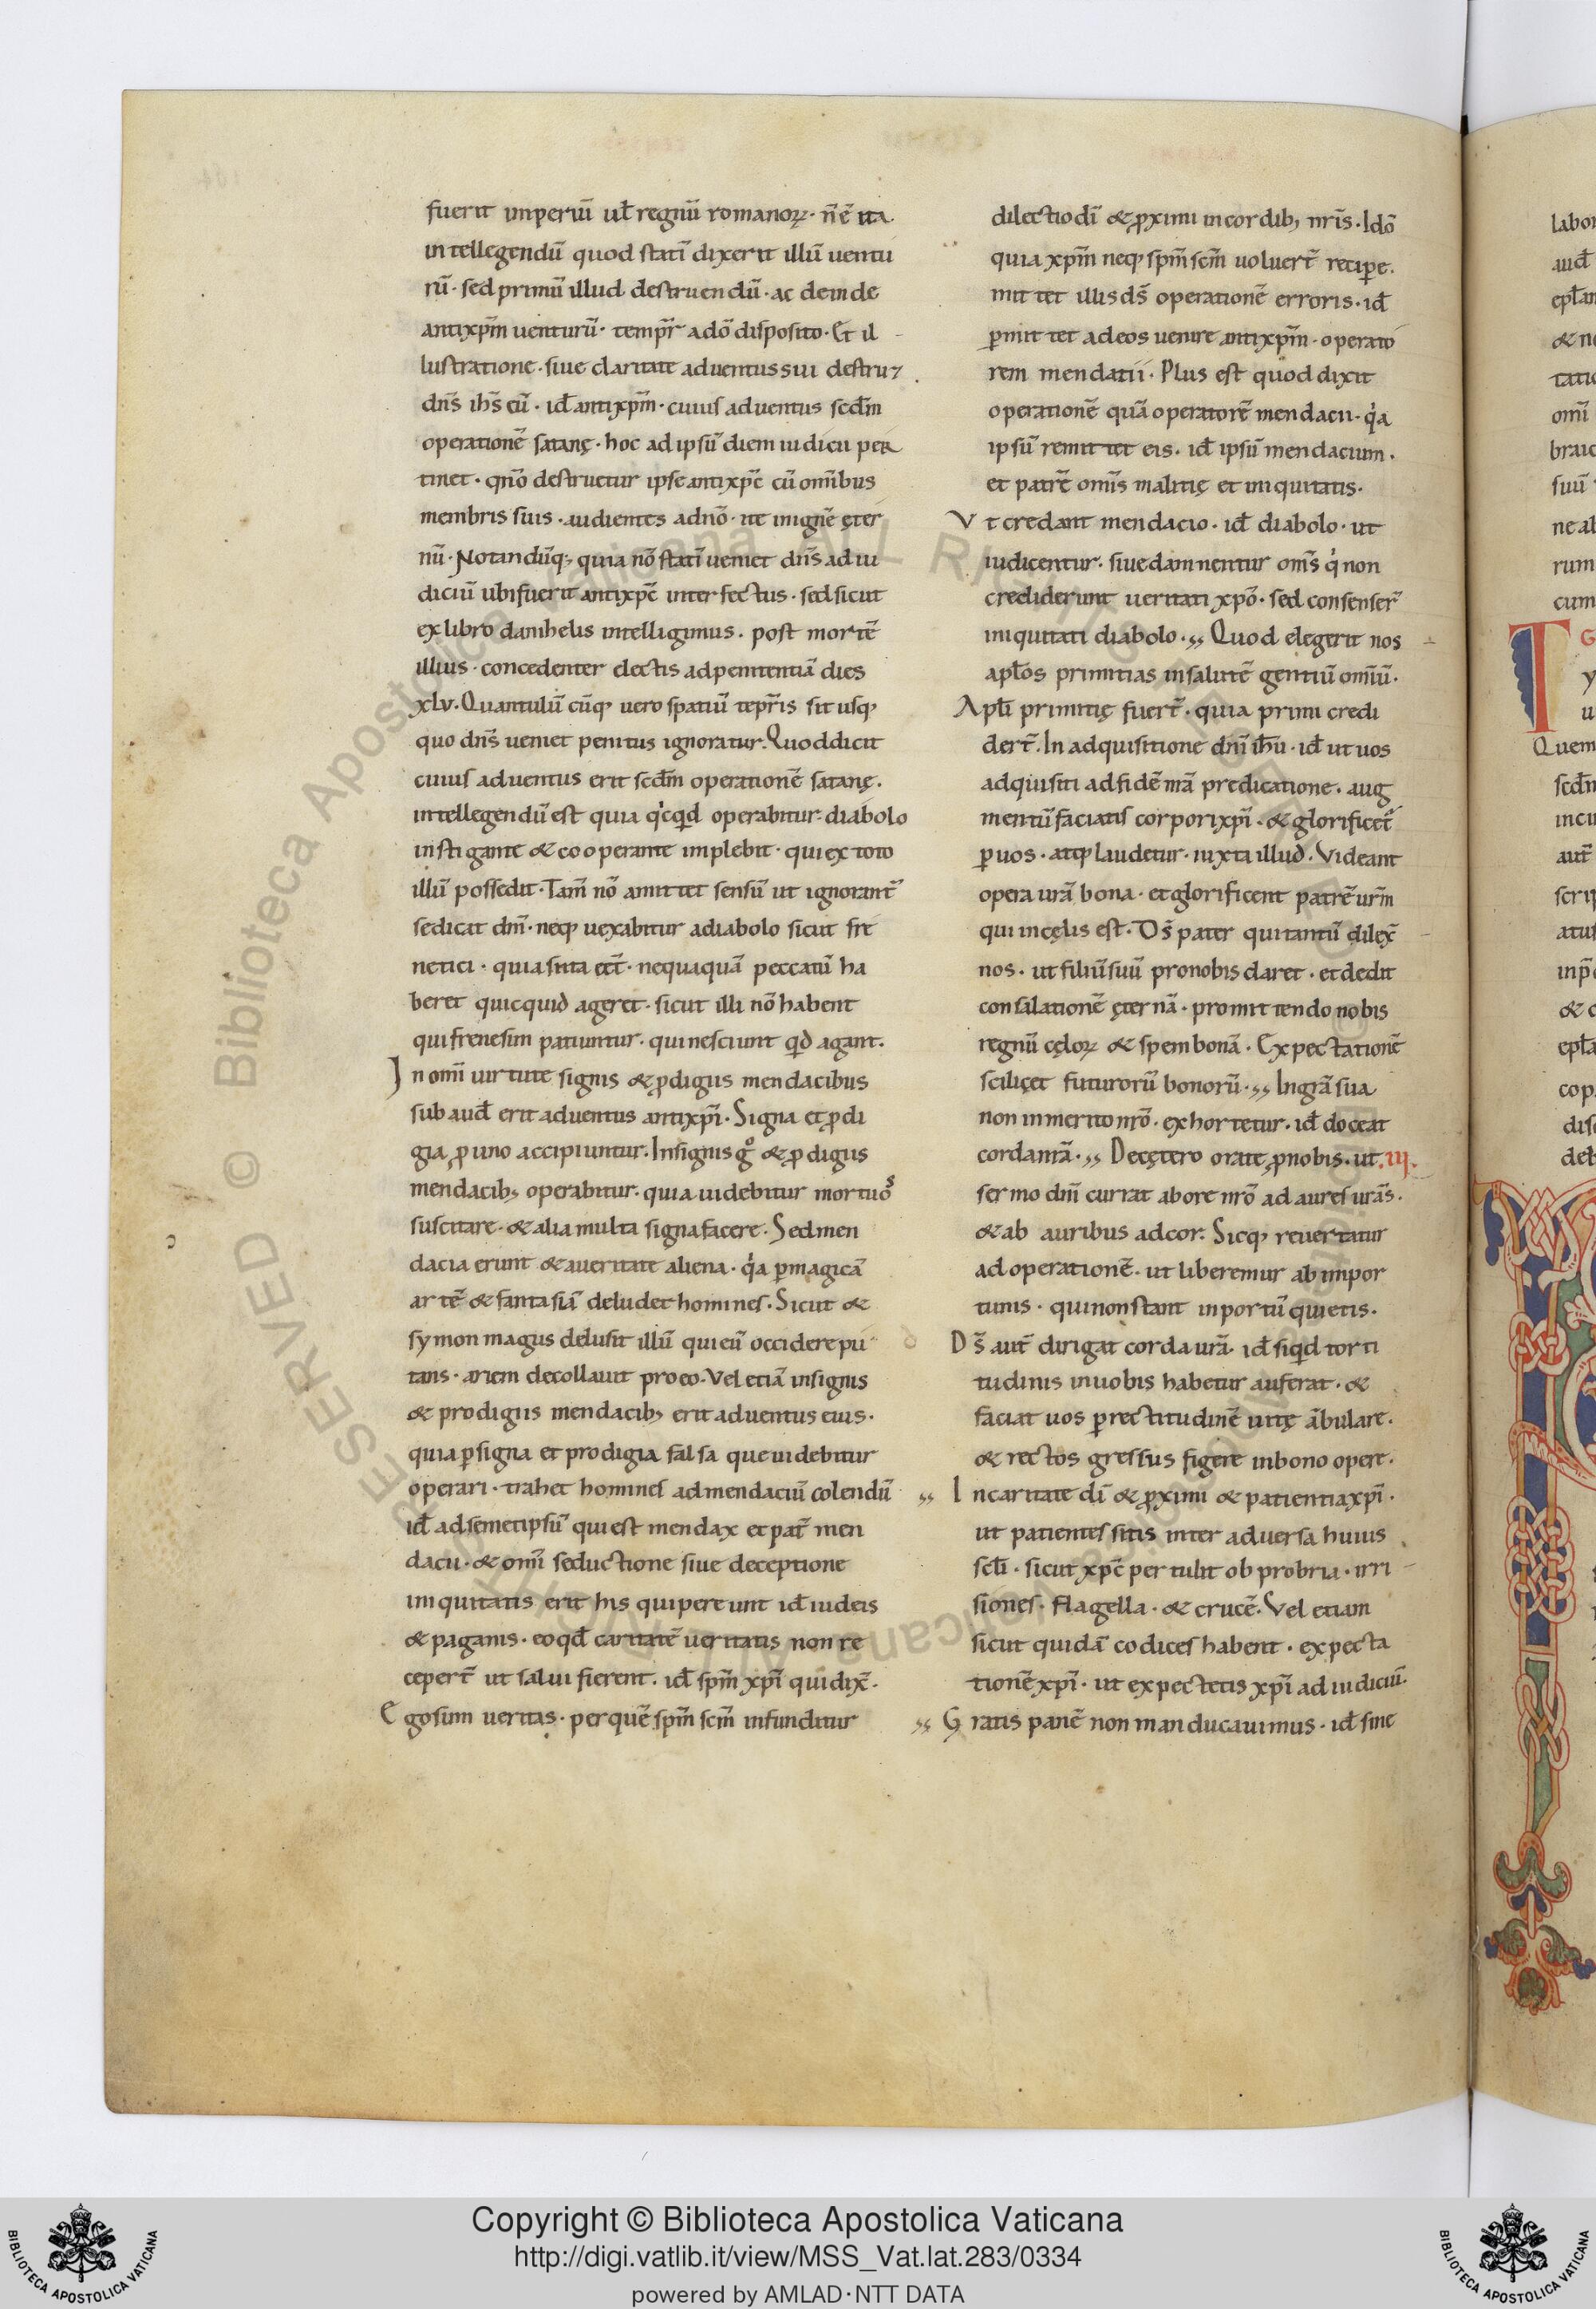 fuerit imperiū ul̄ regnū romanoꝝ· n̄ ē ita
intellegendū quod statī dixerit illū uentu
rū· sed primū illud destruendū· ac deinde
antixp̄m uenturū· temp̄r̄ a dō disposito· Et il
lustratione· siue claritate aduentus sui destru⁊
dn̄s ih̄s eū· id̄ antixp̄m· cuius aduentus scd̄m
operationē satanę· hoc ad ipsū diem iudicii per
tinet· qn̄o destruetur ipse antixp̄c cū om̄ibus
membris suis· audientes a dn̄o· ite in ignē ęter
nū· Notandūq; quia nō statī ueniet dn̄s ad iu
diciū ubi fuerit antixp̄c interfectus· sed sicut
ex libro danihelis intelligimus· post mortē
illius· concedentur electis ad penitentiā dies
xlv· Quantulū cūq; uero spatiū tep̄r̄is sit usq;
quo dn̄s ueniet penitus ignoratur. Quod dicit
cuius aduentus erit scd̄m operationē satanę·
intellegendū est quia q̇cq̄d operabitur· diabolo
instigante & cooperante implebit· qui ex toto
illū possedit· Tam̄ nō amittet sensū ut ignorant̄
se dicat dm̄· neq; uexabitur a diabolo sicut fre
netici· quia si ita eēt̄· nequaquā peccatū ha
beret quicquid ageret· sicut illi nō habent
qui frenesim patiuntur· qui nesciunt q̄d agant.
In om̄i uirtute signis & ꝓdigiis mendacibus
subaud̄ erit aduentus antixp̄i· Signa et ꝓdi
gia ꝓ uno accipiuntur. In signis gͦ & ꝓdigiis
mendacib; operabitur· quia uidebitur mortuoˢ
suscitare· & alia multa signa facere· Sed men
dacia erunt & a ueritate aliena· q̇a ꝑ magicā
artē & fantasiā deludet homines· Sicut &
symon magus delusit illū qui eū occidere pu
tans· ariem decollauit pro eo· Vel etiā in signis
& prodigiis mendacib; erit aduentus eius·
quia ꝑ signa et prodigia falsa que uidebitur
operari· trahet homines ad mendaciū colendū
id̄ ad semetipsū qui est mendax et pat̄ men
dacii· & om̄i seductione siue deceptione
iniquitatis erit his qui pereunt id̄ iudeis
& paganis· eo qd̄ caritatē ueritatis non re
cepert̄ ut salui fierent· id̄ sp̄m xp̄i qui dix̄·
Ego sum ueritas· per quē sp̄m sc̄m infunditur
dilectio dī & ꝓximi in cordib; nr̄is· Idō
quia xp̄m neq; sp̄m sc̄m uoluert̄ recipe·
mittet illis ds̄ operationē erroris· id̄
ꝑmittet ad eos uenire antixp̄m· operato
rem mendatii· Plus est quod dixit
operationē quā operatorē mendacii· q̇a
ipsū remittet eis· id̄ ipsū mendacium·
et patrē om̄is malitię et iniquitatis·
Vt credant mendacio· id̄ diabolo· ut
iudicentur· siue damnentur oms̄ q̇ non
crediderunt ueritati xpō· sed consenser̄
iniquitati diabolo·,, Quod elegerit nos
apl̄os primitias in salutē gentiū om̄iū·
Apl̄i primitię fuert̄· quia primi credi
dert̄· In adquisitione dn̄i ih̄u· id̄ ut uos
adquisiti ad fidē nr̄a predicatione· aug
mentū faciatis corpori xp̄i· & glorificet̄
ꝑ uos· atq; laudetur· iuxta illud· Videant
opera ur̄a bona· et glorificent patrē ur̄m
qui in cęlis est· Ds̄ pater qui tantū dilex̄
nos· ut filiū suū pro nobis daret· et dedit
consalationē ęternā· promittendo nobis
regnū cęloꝝ & spem bonā· Expectationē
sciliçet futurorū bonorū·,, In gr̄a sua
non in merito nr̄o· exhortetur· id̄ doceat
corda nr̄a·,, De cętero orate ꝓ nobis· ut .III.
sermo dn̄i currat ab ore nr̄o ad aures ur̄as·
& ab auribus ad cor: Sicq; reuertatur
ad operationē· ut liberemur ab impor
tunis· qui non stant in portū quietis·
Ds̄ aut̄ dirigat corda ur̄a· id̄ siq̄d torti
tudinis in uobis habetur auferat· &
faciat uos ꝑ rectitudinē uitę ābulare·
& rectos gressus figere in bono opere·
,, In caritate dī & ꝓximi & patientia xp̄i·
ut patientes sitis inter aduersa huius
scl̄i· sicut xp̄c pertulit obprobria· irri
siones· flagella· & crucē· Vel etiam
sicut quidā codices habent· expecta
tionē xp̄i· ut expectetis xp̄i ad iudiciū·
,, Gratis panē non manducauimus· id̄ sine
Copyright © Biblioteca Apostolica Vaticana
http://digi.vatlib.it/view/MSS_Vat.lat.283/0334
powered by AMLAD·NTT DATA
BIBLIOTECA APOSTOLICA VATICANA
BIBLIOTECA APOSTOLICA VATICANA